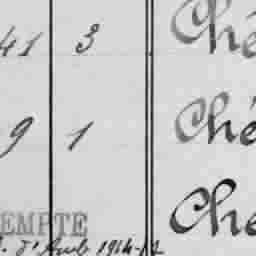 41 3 Ché
9 1 Ché
Che
EMPTE
d'Amb 1914-12